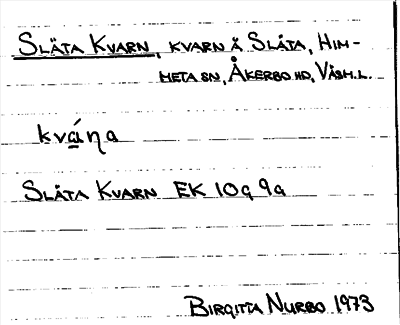 Släta Kvarn, kvarn å Släta, Him-
meta sn, Åkerbo hd, Väsm.l.
kvá̱ṇa
Släta Kvarn EK 10g 9a
Birgitta Nurbo 1973